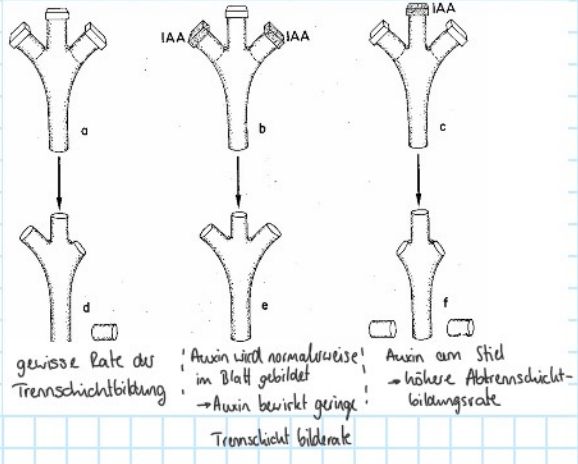 IAA
IAA IAA
a
b
c
d
e
f
gewisse Rate der
Trennschichtbildung
Auxin wird normalerweise
im Blatt gebildet
→ Auxin bewirkt geringe
Trennschicht bilderate
Auxin am Stiel
→ höhere Abtrennschicht-
bildungsrate